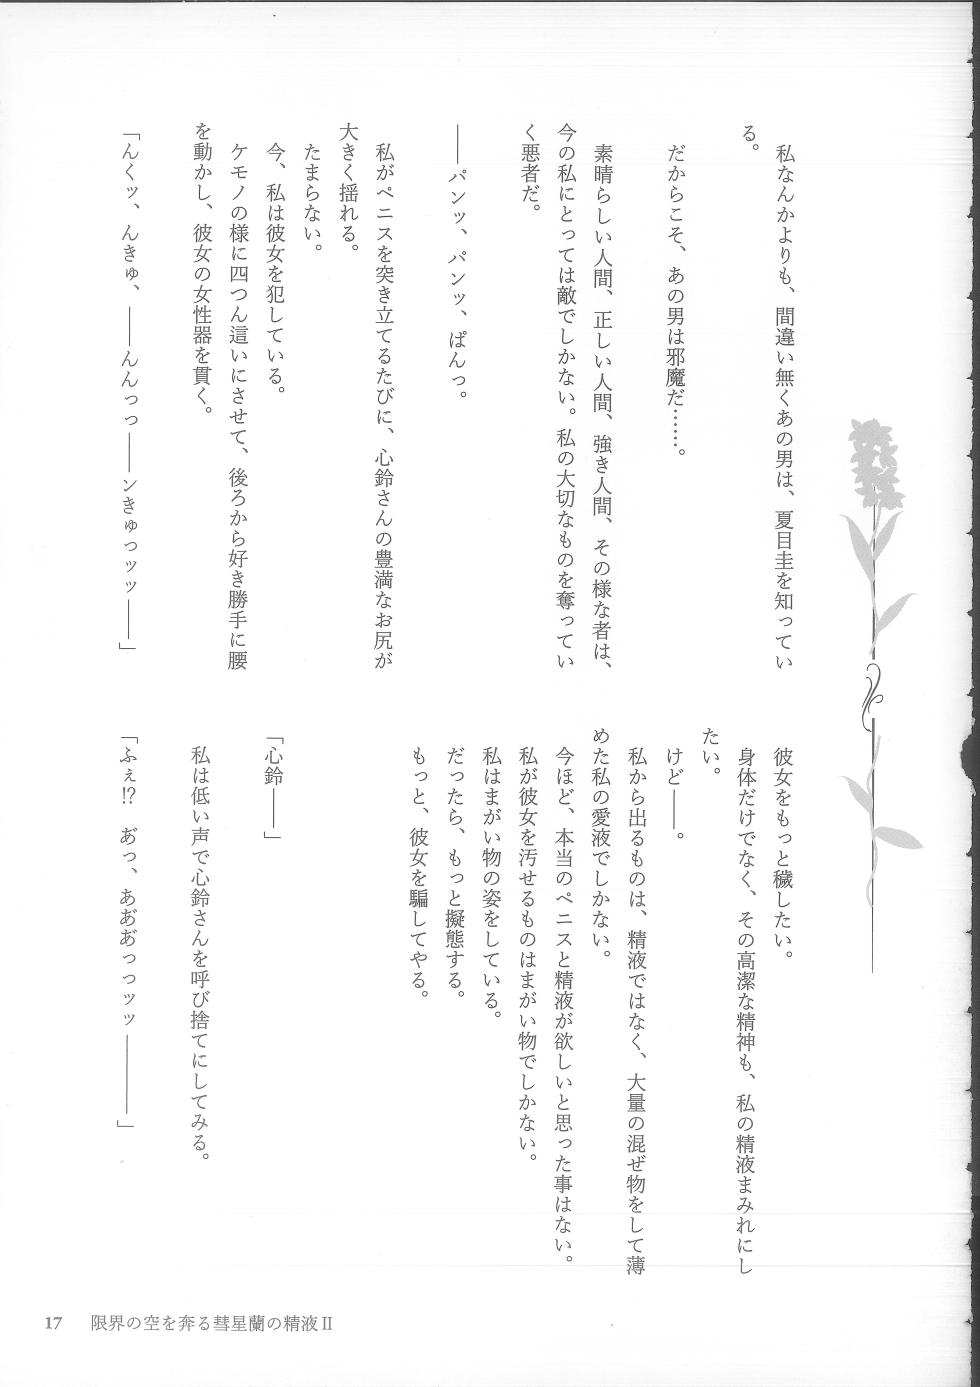 私なんかよりも、間違い無くあの男は、夏目圭を知ってい
る。
だからこそ、あの男は邪魔だ……。
素晴らしい人間、正しい人間、強き人間、その様な者は、
今の私にとっては敵でしかない。私の大切なものを奪ってい
く悪者だ。
――パンッ、パンッ、ぱんっ。
私がペニスを突き立てるたびに、心鈴さんの豊満なお尻が
大きく揺れる。
たまらない。
今、私は彼女を犯している。
ケモノの様に四つん這いにさせて、後ろから好き勝手に腰
を動かし、彼女の女性器を貫く。
「んくッ、んきゅ、――んんっっ――ンきゅっッッ――」
彼女をもっと穢したい。
身体だけでなく、その高潔な精神も、私の精液まみれにし
たい。
けど――。
私から出るものは、精液ではなく、大量の混ぜ物をして薄
めた私の愛液でしかない。
今ほど、本当のペニスと精液が欲しいと思った事はない。
私が彼女を汚せるものはまがい物でしかない。
私はまがい物の姿をしている。
だったら、もっと擬態する。
もっと、彼女を騙してやる。
「心鈴――」
私は低い声で心鈴さんを呼び捨てにしてみる。
「ふぇ!?　あ゙っ、ああ゙あ゙っっッッ――――」
17　限界の空を奔る彗星蘭の精液Ⅱ